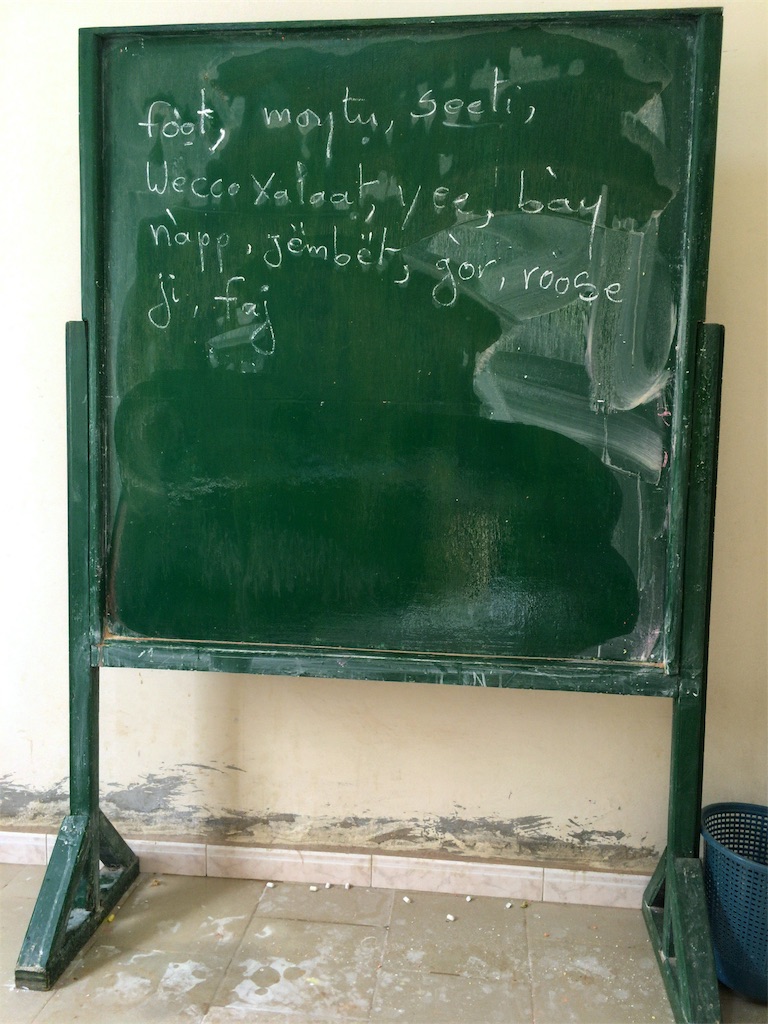 fòot, moytu, seeti,
Wecco Xalaat, yee, bày
nàpp, jëmbët, gòr, roose
ji, faj